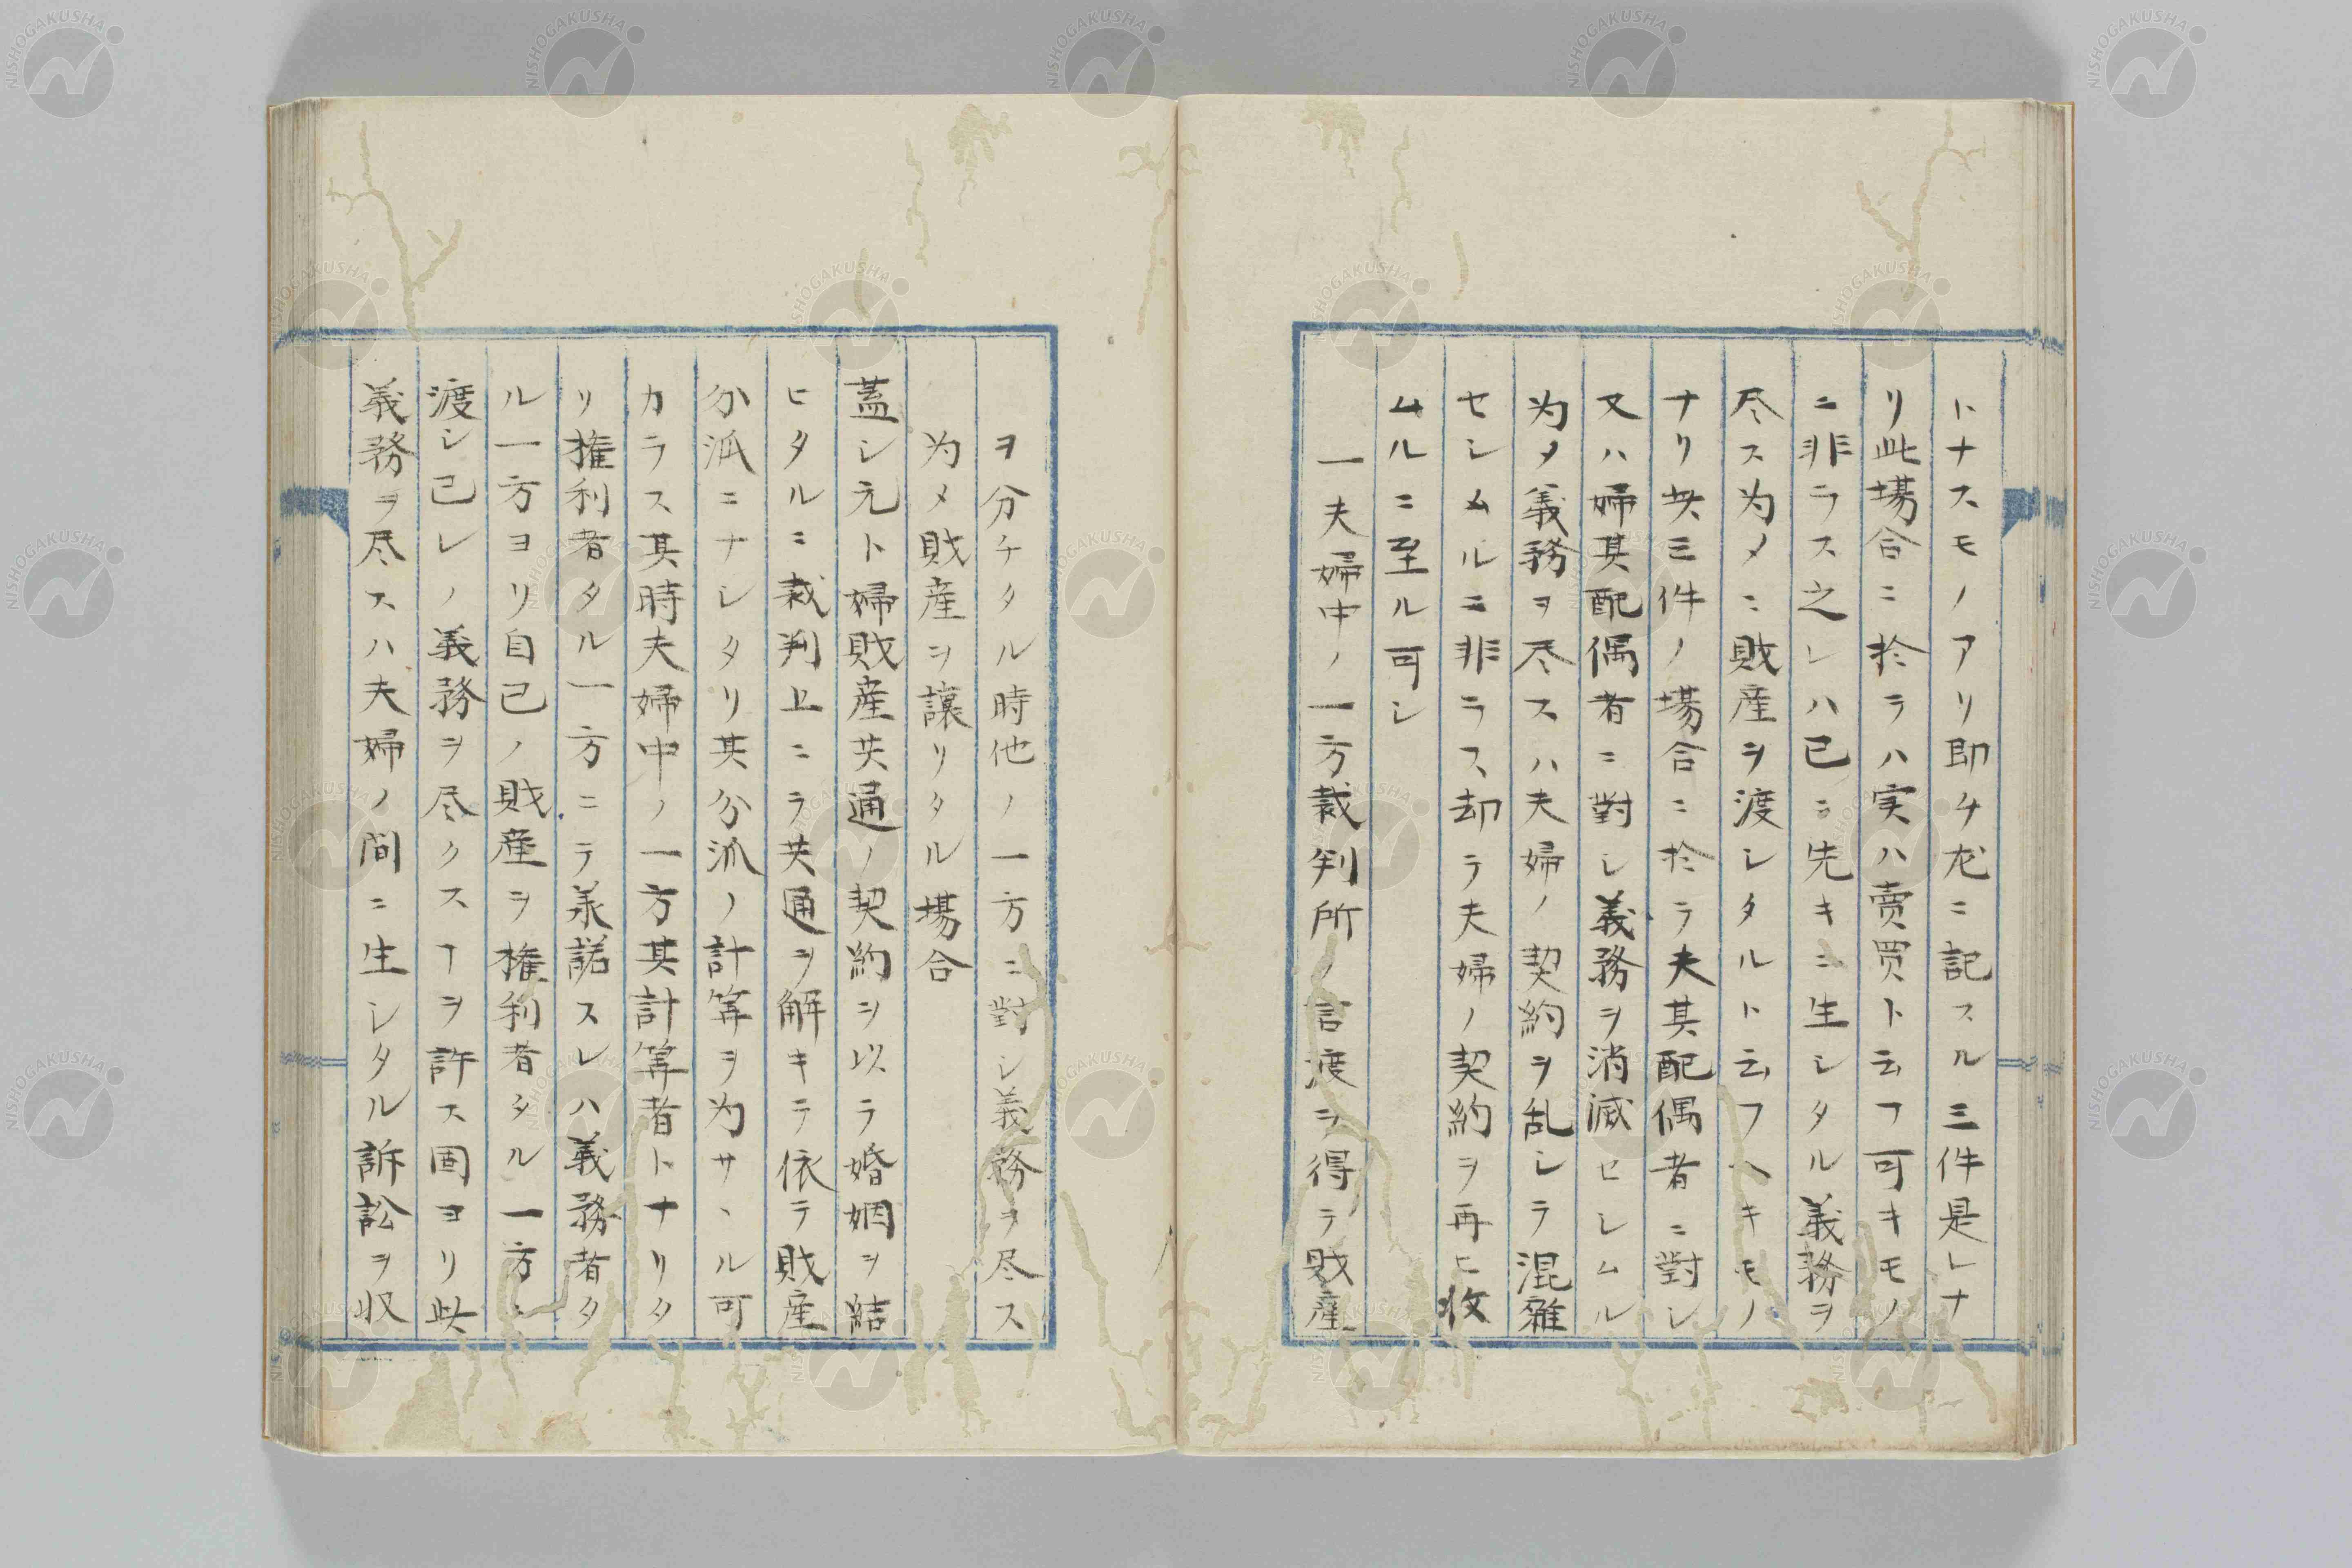 トナスモノアリ即チ左ニ記スル三件是レナ
リ此場合ニ於テハ実ハ賣買ト云フ可キモノ
ニ非ラス之レハ已ニ先キニ生シタル義務ヲ
尽ス为メニ財産ヲ渡シタルト云フヘキモノ
ナリ此三件ノ場合ニ於テ夫其配偶者ニ對シ
又ハ婦其配偶者ニ對シ義務ヲ消滅セシムル
为メ義務ヲ尽スハ夫婦ノ契約ヲ乱シテ混雜
セシムルニ非ラス却テ夫婦ノ契約ヲ再ヒ收
ムルニ至ル可シ
一夫婦中ノ一方裁判所ノ言渡ヲ得テ財産
ヲ分チタル時他ノ一方ニ對シ義務ヲ尽ス
为メ財産ヲ讓リタル場合
蓋シ元ト婦財産共通ノ契約ヲ以テ婚姻ヲ結
ヒタルニ裁判上ニテ共通ヲ解キテ依テ財産
分派ニナシタリ其分派ノ計筭ヲ为サヽル可
カラス其時夫婦中ノ一方其計筭者トナリタ
リ権利者タル一方ニテ承諾スレハ義務者タ
ル一方ヨリ自己ノ財産ヲ権利者タル一方ニ
渡シ己レノ義務ヲ尽クスヿヲ許ス固ヨリ此
義務ヲ尽スハ夫婦ノ間ニ生シタル訴訟ヲ収
NISHOGAKUSHA